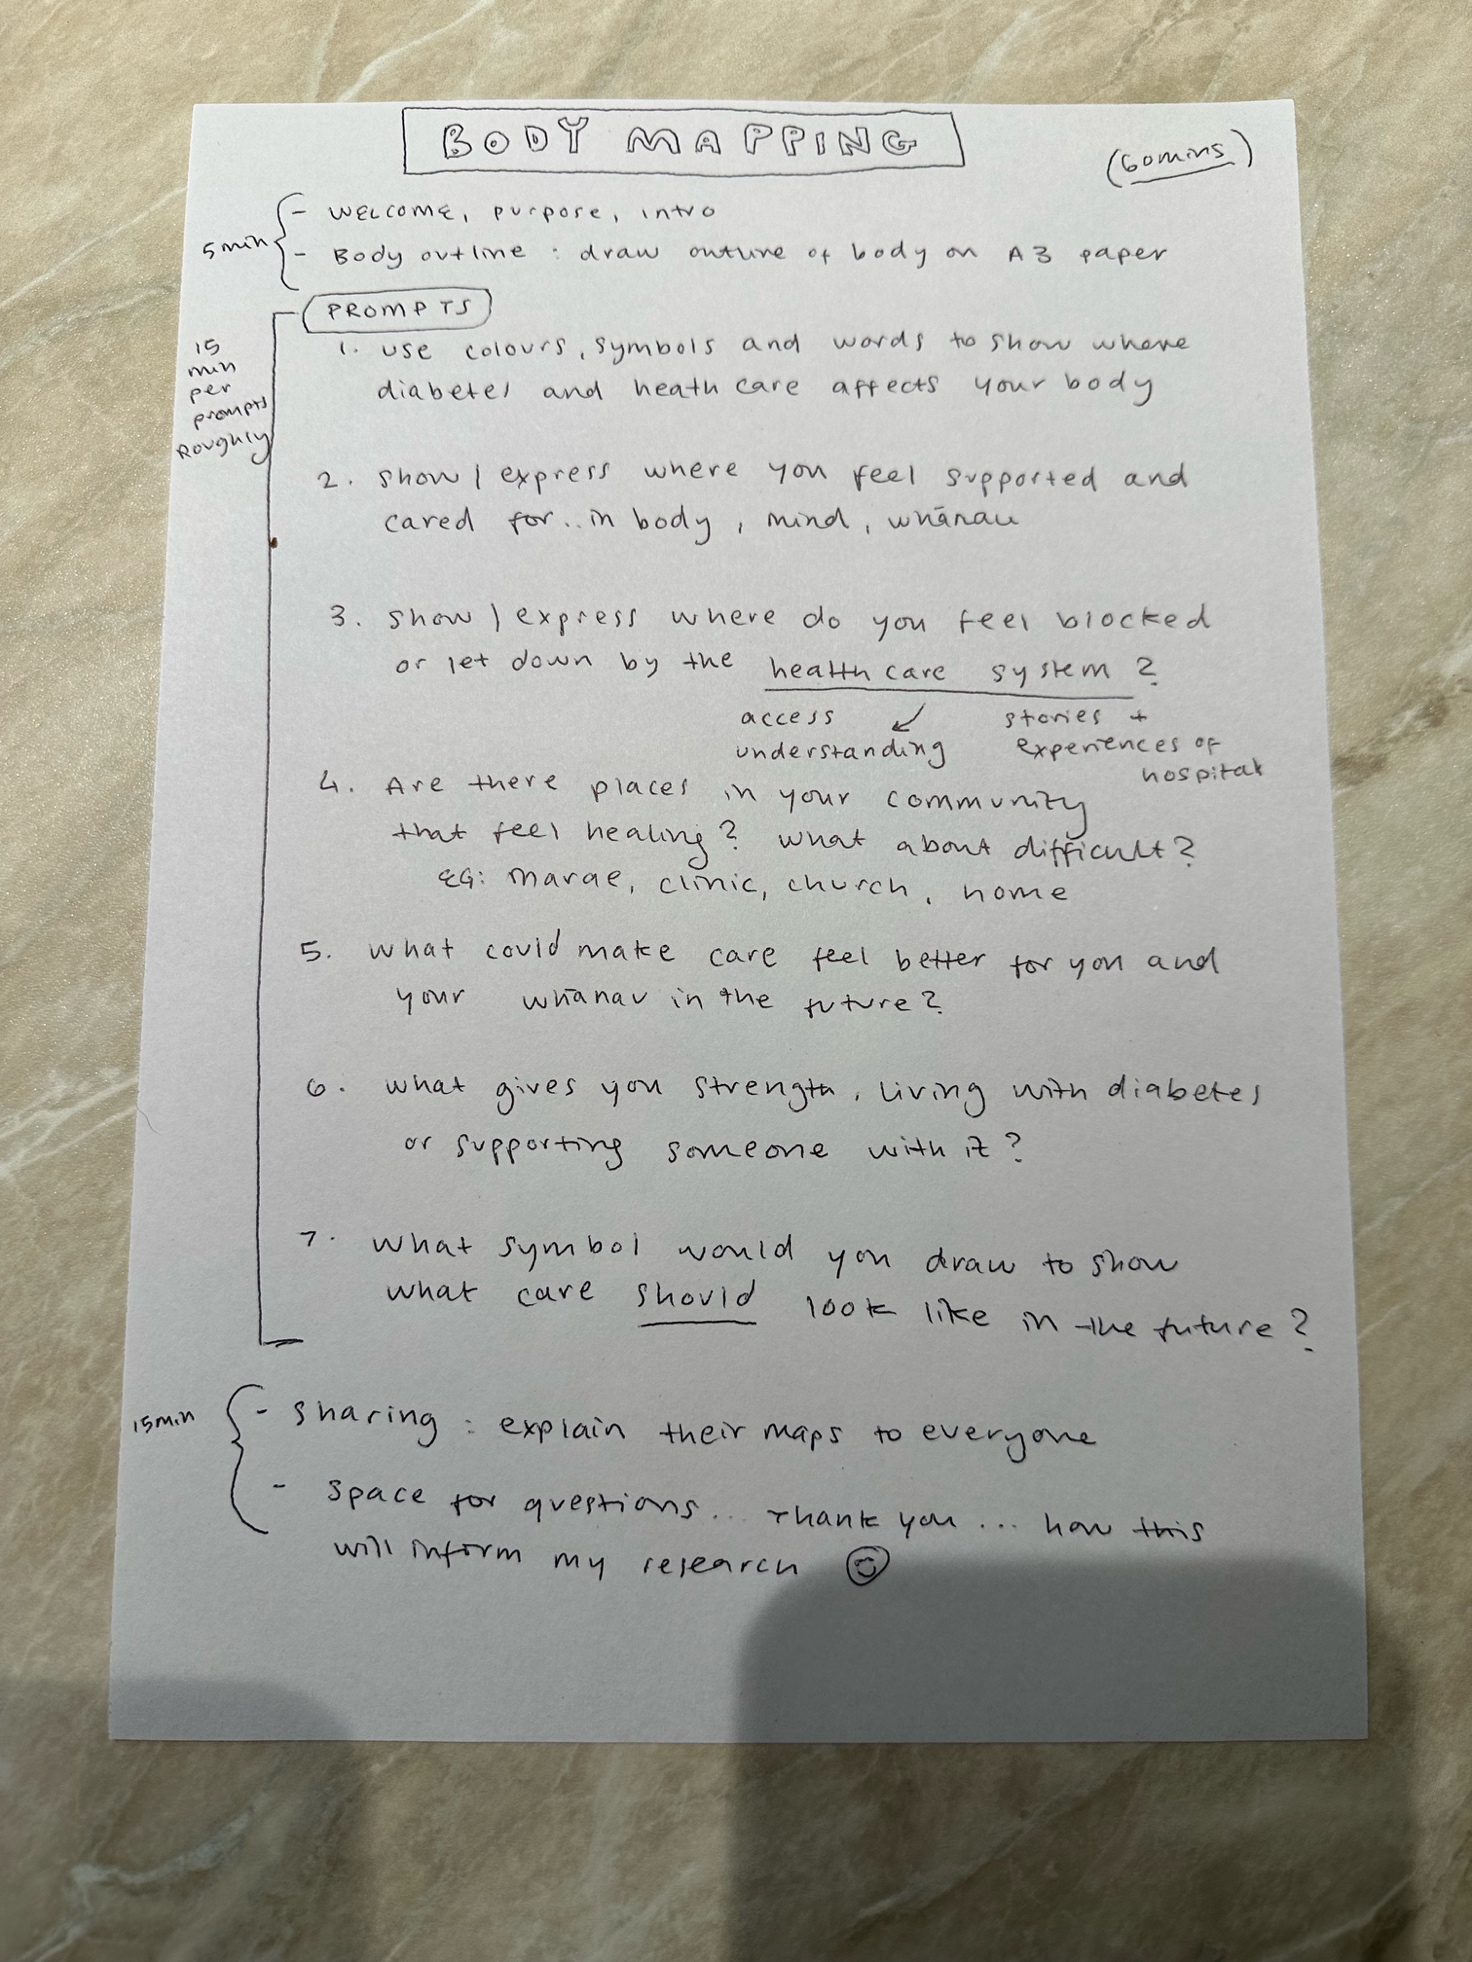 BODY MAPPING
(60mins)
5min
- WELCOME, purpose, intro
- Body outline : draw outline of body on A3 paper
PROMPTS
15
min
per
prompts
Roughly
1. use colours, symbols and words to show where
diabetes and heath care affects your body
2. show / express where you feel supported and
cared for.. in body, mind, whānau
3. show / express where do you feel blocked
or let down by the health care system?
access
understanding
stories +
experiences of
hospital
4. Are there places in your community
that feel healing? what about difficult?
EG: marae, clinic, church, home
5. what could make care feel better for you and
your whānau in the future?
6. what gives you strength, living with diabetes
or supporting someone with it?
7. what symbol would you draw to show
what care should look like in the future?
15min
- sharing : explain their maps to everyone
- space for questions... Thank you... how this
will inform my research